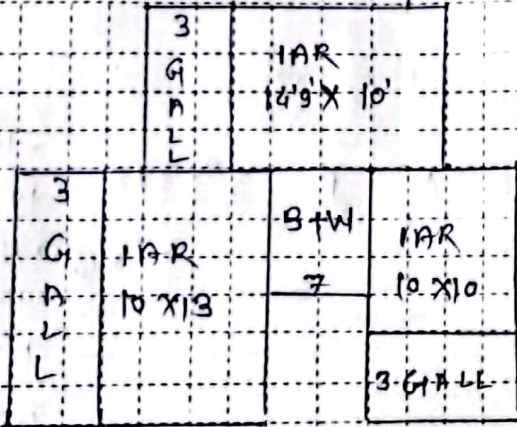 3
G
A
L
L
1AR
14'9' X 10'
3
G
A
L
L
1AR
10 X13
B+W
7
1AR
10 X10
3 GALL